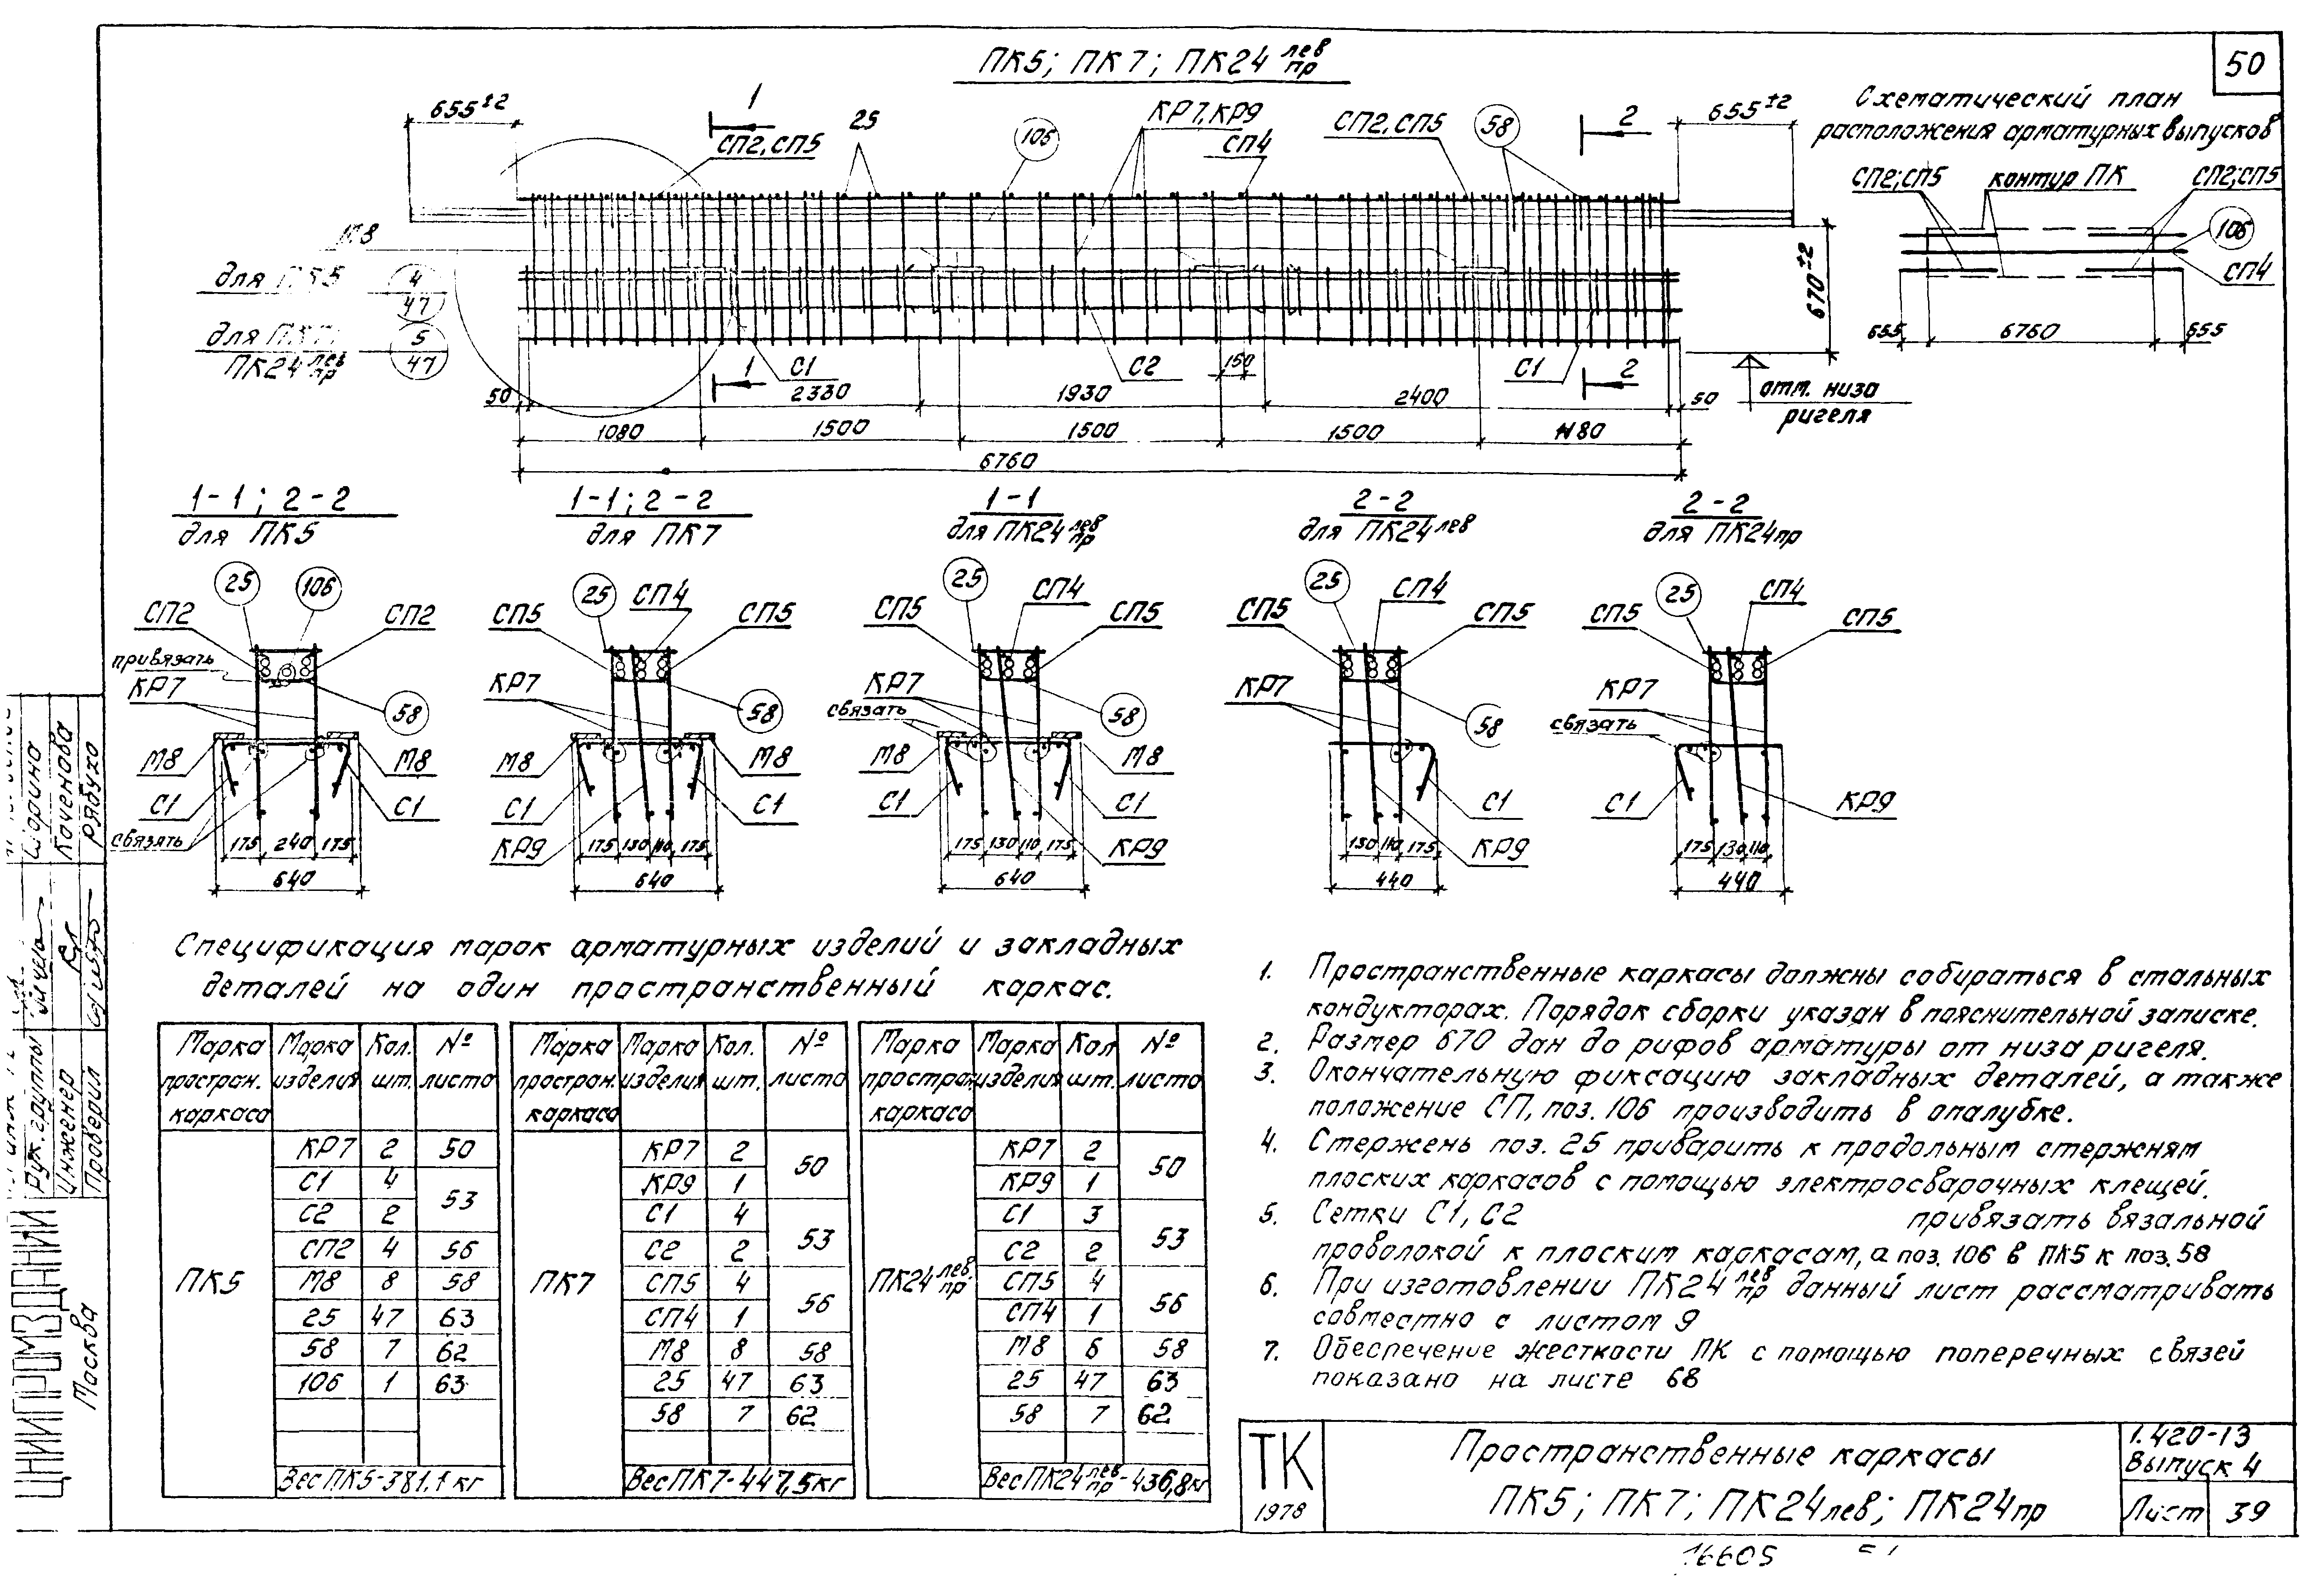 50
ПК5; ПК7; ПК24 лев пр
Схематический план
расположения арматурных выпусков
655±2
1
СП2,СП5
25
106
КР7,КР9
СП4
СП2,СП5
58
2
655±2
СП2;СП5
контур ПК
СП2;СП5
106
СП4
655
6760
655
М8
для ПК5
4
47
для
5
47
ПК24 лев пр
670±2
1
С1
С2
150
С1
2
отм. низа
ригеля
50
2330
1930
2400
50
1080
1500
1500
1500
1180
6760
1-1; 2-2
для ПК5
1-1; 2-2
для ПК7
1-1
для ПК24 лев пр
2-2
для ПК24 лев
2-2
для ПК24пр
25
106
СП2
СП2
привязать
КР7
58
М8
М8
С1
С1
связать
175
240
175
640
25
СП4
СП5
СП5
КР7
58
М8
М8
С1
С1
КР9
175
130
110
175
640
25
СП4
СП5
СП5
КР7
связать
58
М8
М8
С1
С1
КР9
175
130
110
175
640
25
СП4
СП5
СП5
КР7
58
С1
КР9
130
110
175
440
25
СП4
СП5
СП5
КР7
связать
С1
КР9
175
130
110
440
Спецификация марок арматурных изделий и закладных
деталей на один пространственный каркас.
Марка простран. каркаса
Марка изделия
Кол. шт.
№ листа
ПК5
КР7 2 50
С1 4 53
С2 2
СП2 4 56
М8 8 58
25 47 63
58 7 62
106 1 63
Вес ПК5-381,1 кг
Марка простран. каркаса
Марка изделия
Кол. шт.
№ листа
ПК7
КР7 2 50
КР9 1
С1 4 53
С2 2
СП5 4 56
СП4 1
М8 8 58
25 47 63
58 7 62
Вес ПК7-447,5кг
Марка простран. каркаса
Марка изделия
Кол шт.
№ листа
ПК24 лев. пр
КР7 2 50
КР9 1
С1 3 53
С2 2
СП5 4 56
СП4 1
М8 6 58
25 47 63
58 7 62
Вес ПК24 лев пр -436,8кг
1. Пространственные каркасы должны собираться в стальных
кондукторах. Порядок сборки указан в пояснительной записке.
2. Размер 670 дан до рифов арматуры от низа ригеля.
3. Окончательную фиксацию закладных деталей, а также
положение СП, поз. 106 производить в опалубке.
4. Стержень поз. 25 приварить к продольным стержням
плоских каркасов с помощью электросварочных клещей.
5. Сетки С1, С2 привязать вязальной
проволокой к плоским каркасам, а поз. 106 в ПК5 к поз. 58
6. При изготовлении ПК24 лев пр данный лист рассматривать
совместно с листом 9
7. Обеспечение жесткости ПК с помощью поперечных связей
показано на листе 68
ТК
1978
Пространственные каркасы
ПК5; ПК7; ПК24лев; ПК24пр
1.420-13
Выпуск 4
Лист 39
16605
ЦНИИПРОМЗДАНИЙ
Москва
Рук. группы
Инженер
Проверил
Шорина
Коченова
Рябуха